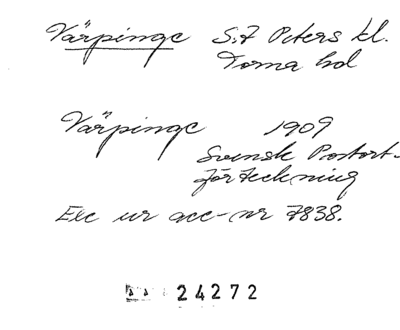 Värpinge S:t Peters kl.
Torna hd
Värpinge 1909
Svensk Postort-
förteckning
Exc ur acc-nr 7838.
24272